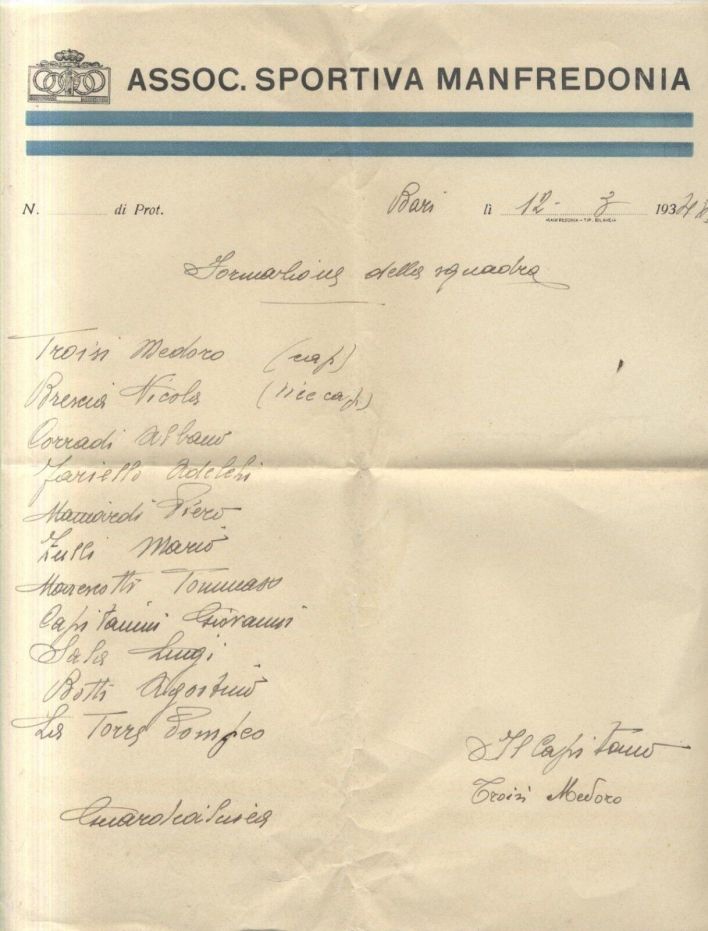 ASSOC. SPORTIVA MANFREDONIA
N. di Prot. Bari lì 12 - 3 1934
MANFREDONIA - TIP. BILANCIA
Formazione della squadra
Troisi Medoro (cap)
Brescia Nicola (vice cap)
Corradi Albano
Fariello Adelchi
Mainardi Piero
Zulli Mario
Marescotti Tommaso
Capitanini Giovanni
Sala Luigi
Botti Agostino
La Torre Pompeo
Il Capitano
Troisi Medoro
Guardialinea